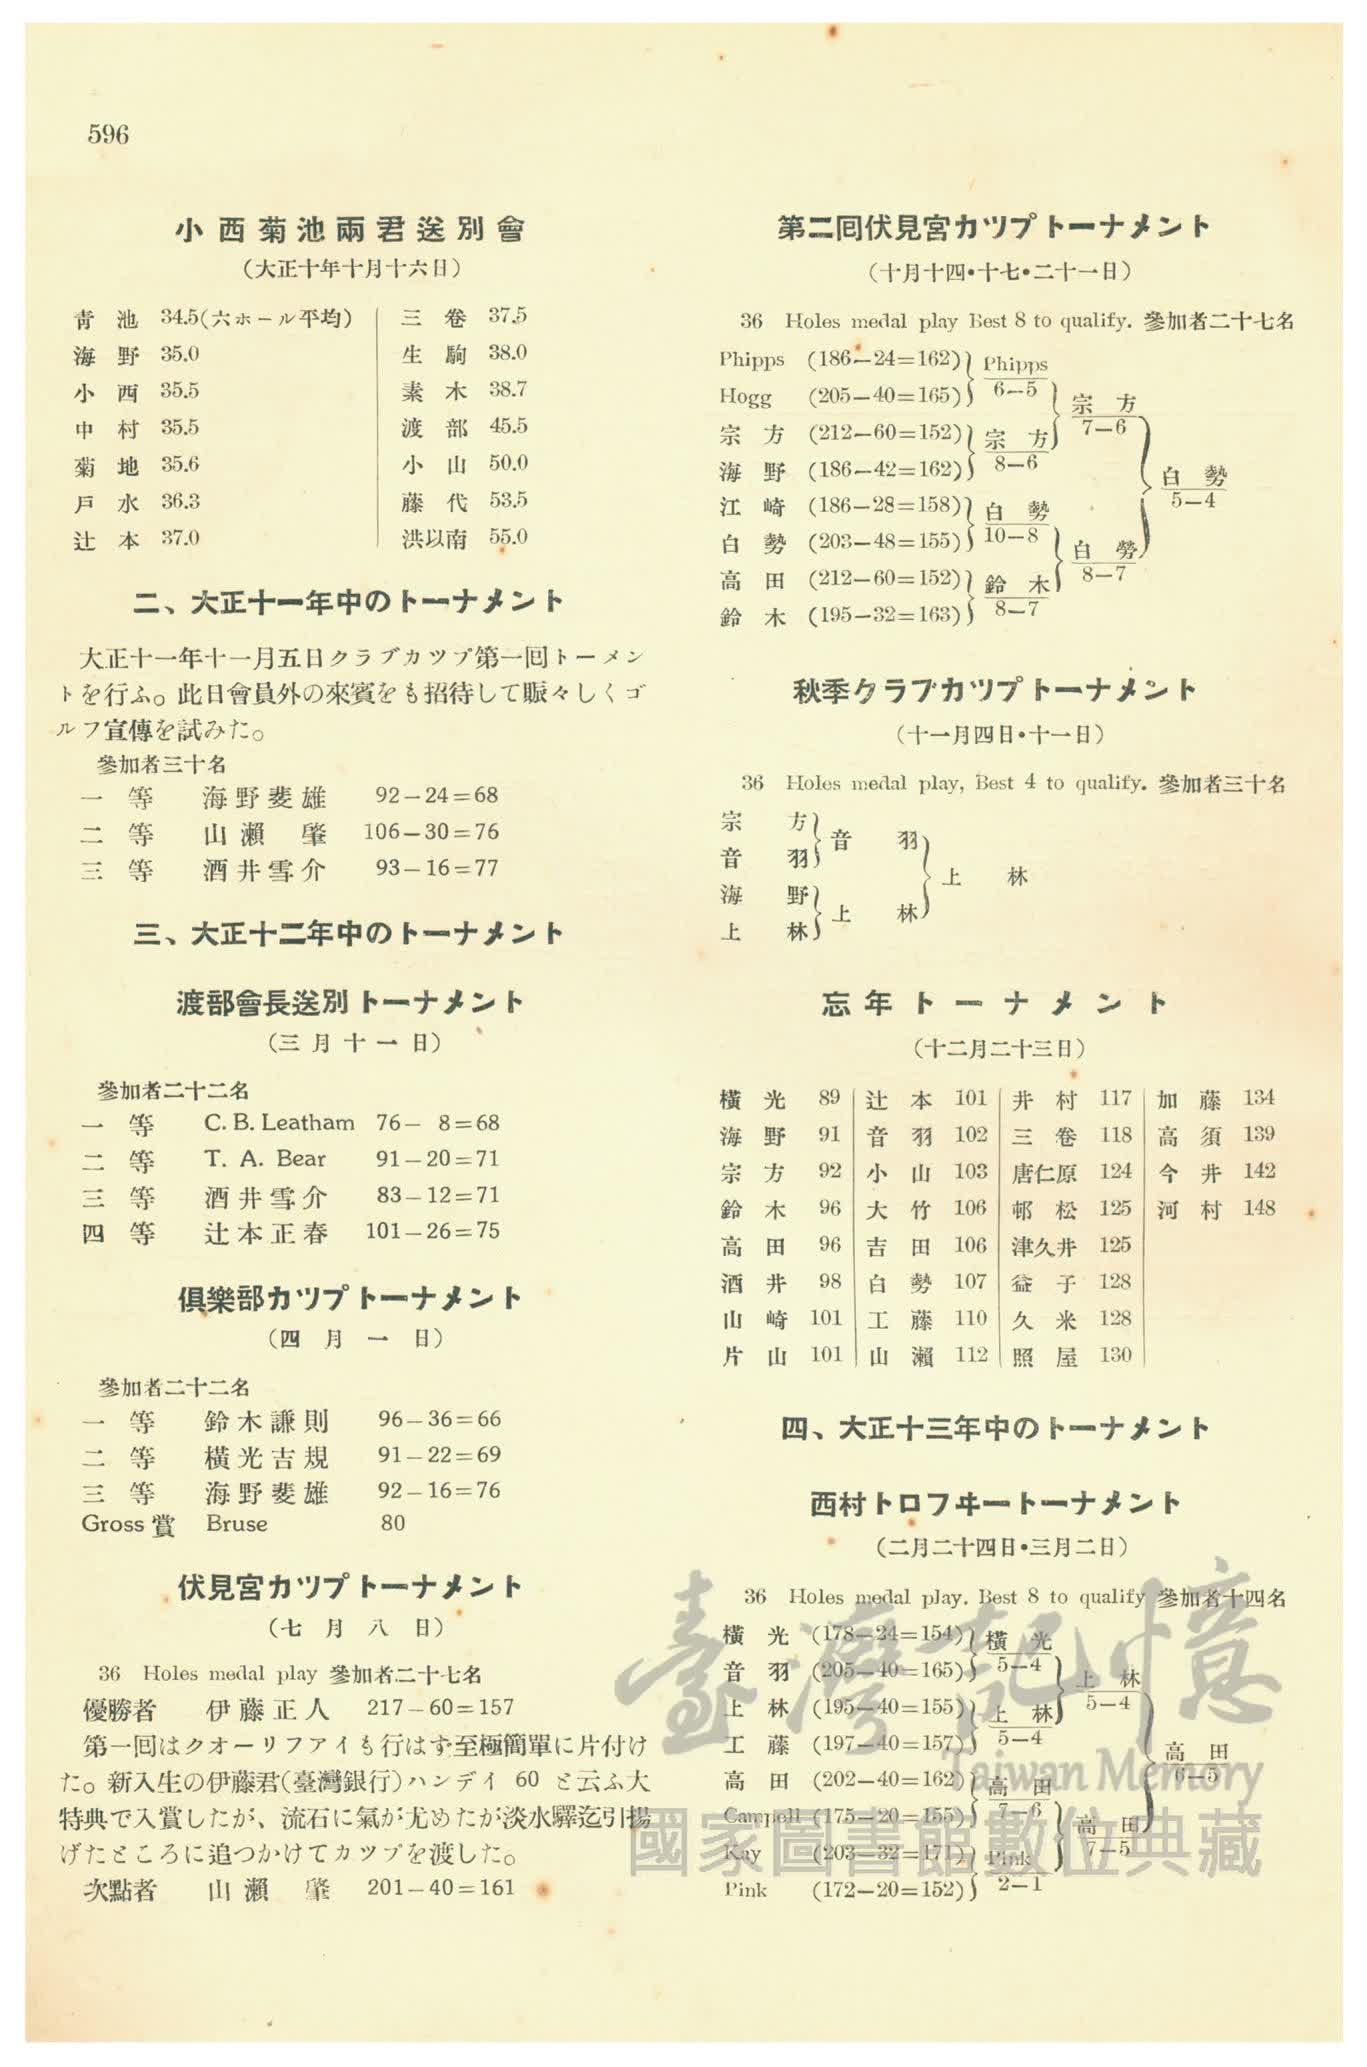 596
小西菊池兩君送別會
（大正十年十月十六日）
靑池 34.5(六ホール平均)
海野 35.0
小西 35.5
中村 35.5
菊地 35.6
戸水 36.3
辻本 37.0
三卷 37.5
生駒 38.0
素木 38.7
渡部 45.5
小山 50.0
藤代 53.5
洪以南 55.0
二、大正十一年中のトーナメント
大正十一年十一月五日クラブカツプ第一回トーメン
トを行ふ。此日會員外の來賓をも招待して賑々しくゴ
ルフ宣傳を試みた。
參加者三十名
一等 海野斐雄 92－24＝68
二等 山瀨肇 106－30＝76
三等 酒井雪介 93－16＝77
三、大正十二年中のトーナメント
渡部會長送別トーナメント
（三月十一日）
參加者二十二名
一等 C. B. Leatham 76－ 8＝68
二等 T. A. Bear 91－20＝71
三等 酒井雪介 83－12＝71
四等 辻本正春 101－26＝75
俱樂部カツプトーナメント
（四月一日）
參加者二十二名
一等 鈴木謙則 96－36＝66
二等 橫光吉規 91－22＝69
三等 海野斐雄 92－16＝76
Gross 賞 Bruse 80
伏見宮カツプトーナメント
（七月八日）
36 Holes medal play 參加者二十七名
優勝者 伊藤正人 217－60＝157
第一回はクオーリフアイも行はず至極簡單に片付け
た。新入生の伊藤君(臺灣銀行)ハンデイ 60 と云ふ大
特典で入賞したが、流石に氣が尤めたが淡水驛迄引揚
げたところに追つかけてカツプを渡した。
次點者 山瀨肇 201－40＝161
第二回伏見宮カツプトーナメント
（十月十四・十七・二十一日）
36 Holes medal play Best 8 to qualify. 參加者二十七名
Phipps (186－24＝162)
Hogg (205－40＝165)
宗方 (212－60＝152)
海野 (186－42＝162)
江崎 (186－28＝158)
白勢 (203－48＝155)
高田 (212－60＝152)
鈴木 (195－32＝163)
Phipps 6－5
宗方 8－6
白勢 10－8
鈴木 8－7
宗方 7－6
白勞 8－7
白勢 5－4
秋季クラブカツプトーナメント
（十一月四日・十一日）
36 Holes medal play, Best 4 to qualify. 參加者三十名
宗方
音羽
海野
上林
音羽
上林
上林
忘年トーナメント
（十二月二十三日）
橫光 89
海野 91
宗方 92
鈴木 96
高田 96
酒井 98
山崎 101
片山 101
辻本 101
音羽 102
小山 103
大竹 106
吉田 106
白勢 107
工藤 110
山瀨 112
井村 117
三卷 118
唐仁原 124
邨松 125
津久井 125
益子 128
久米 128
照屋 130
加藤 134
高須 139
今井 142
河村 148
四、大正十三年中のトーナメント
西村トロフヰートーナメント
（二月二十四日・三月二日）
36 Holes medal play. Best 8 to qualify 參加者十四名
橫光 (178－24＝154)
音羽 (205－40＝165)
上林 (195－40＝155)
工藤 (197－40＝157)
高田 (202－40＝162)
Campell (175－20＝155)
Kay (203－32＝171)
Pink (172－20＝152)
橫光 5－4
上林 5－4
高田 7－6
Pink 2－1
上林 5－4
高田 7－5
高田 6－5
臺灣記憶
Taiwan Memory
國家圖書館數位典藏